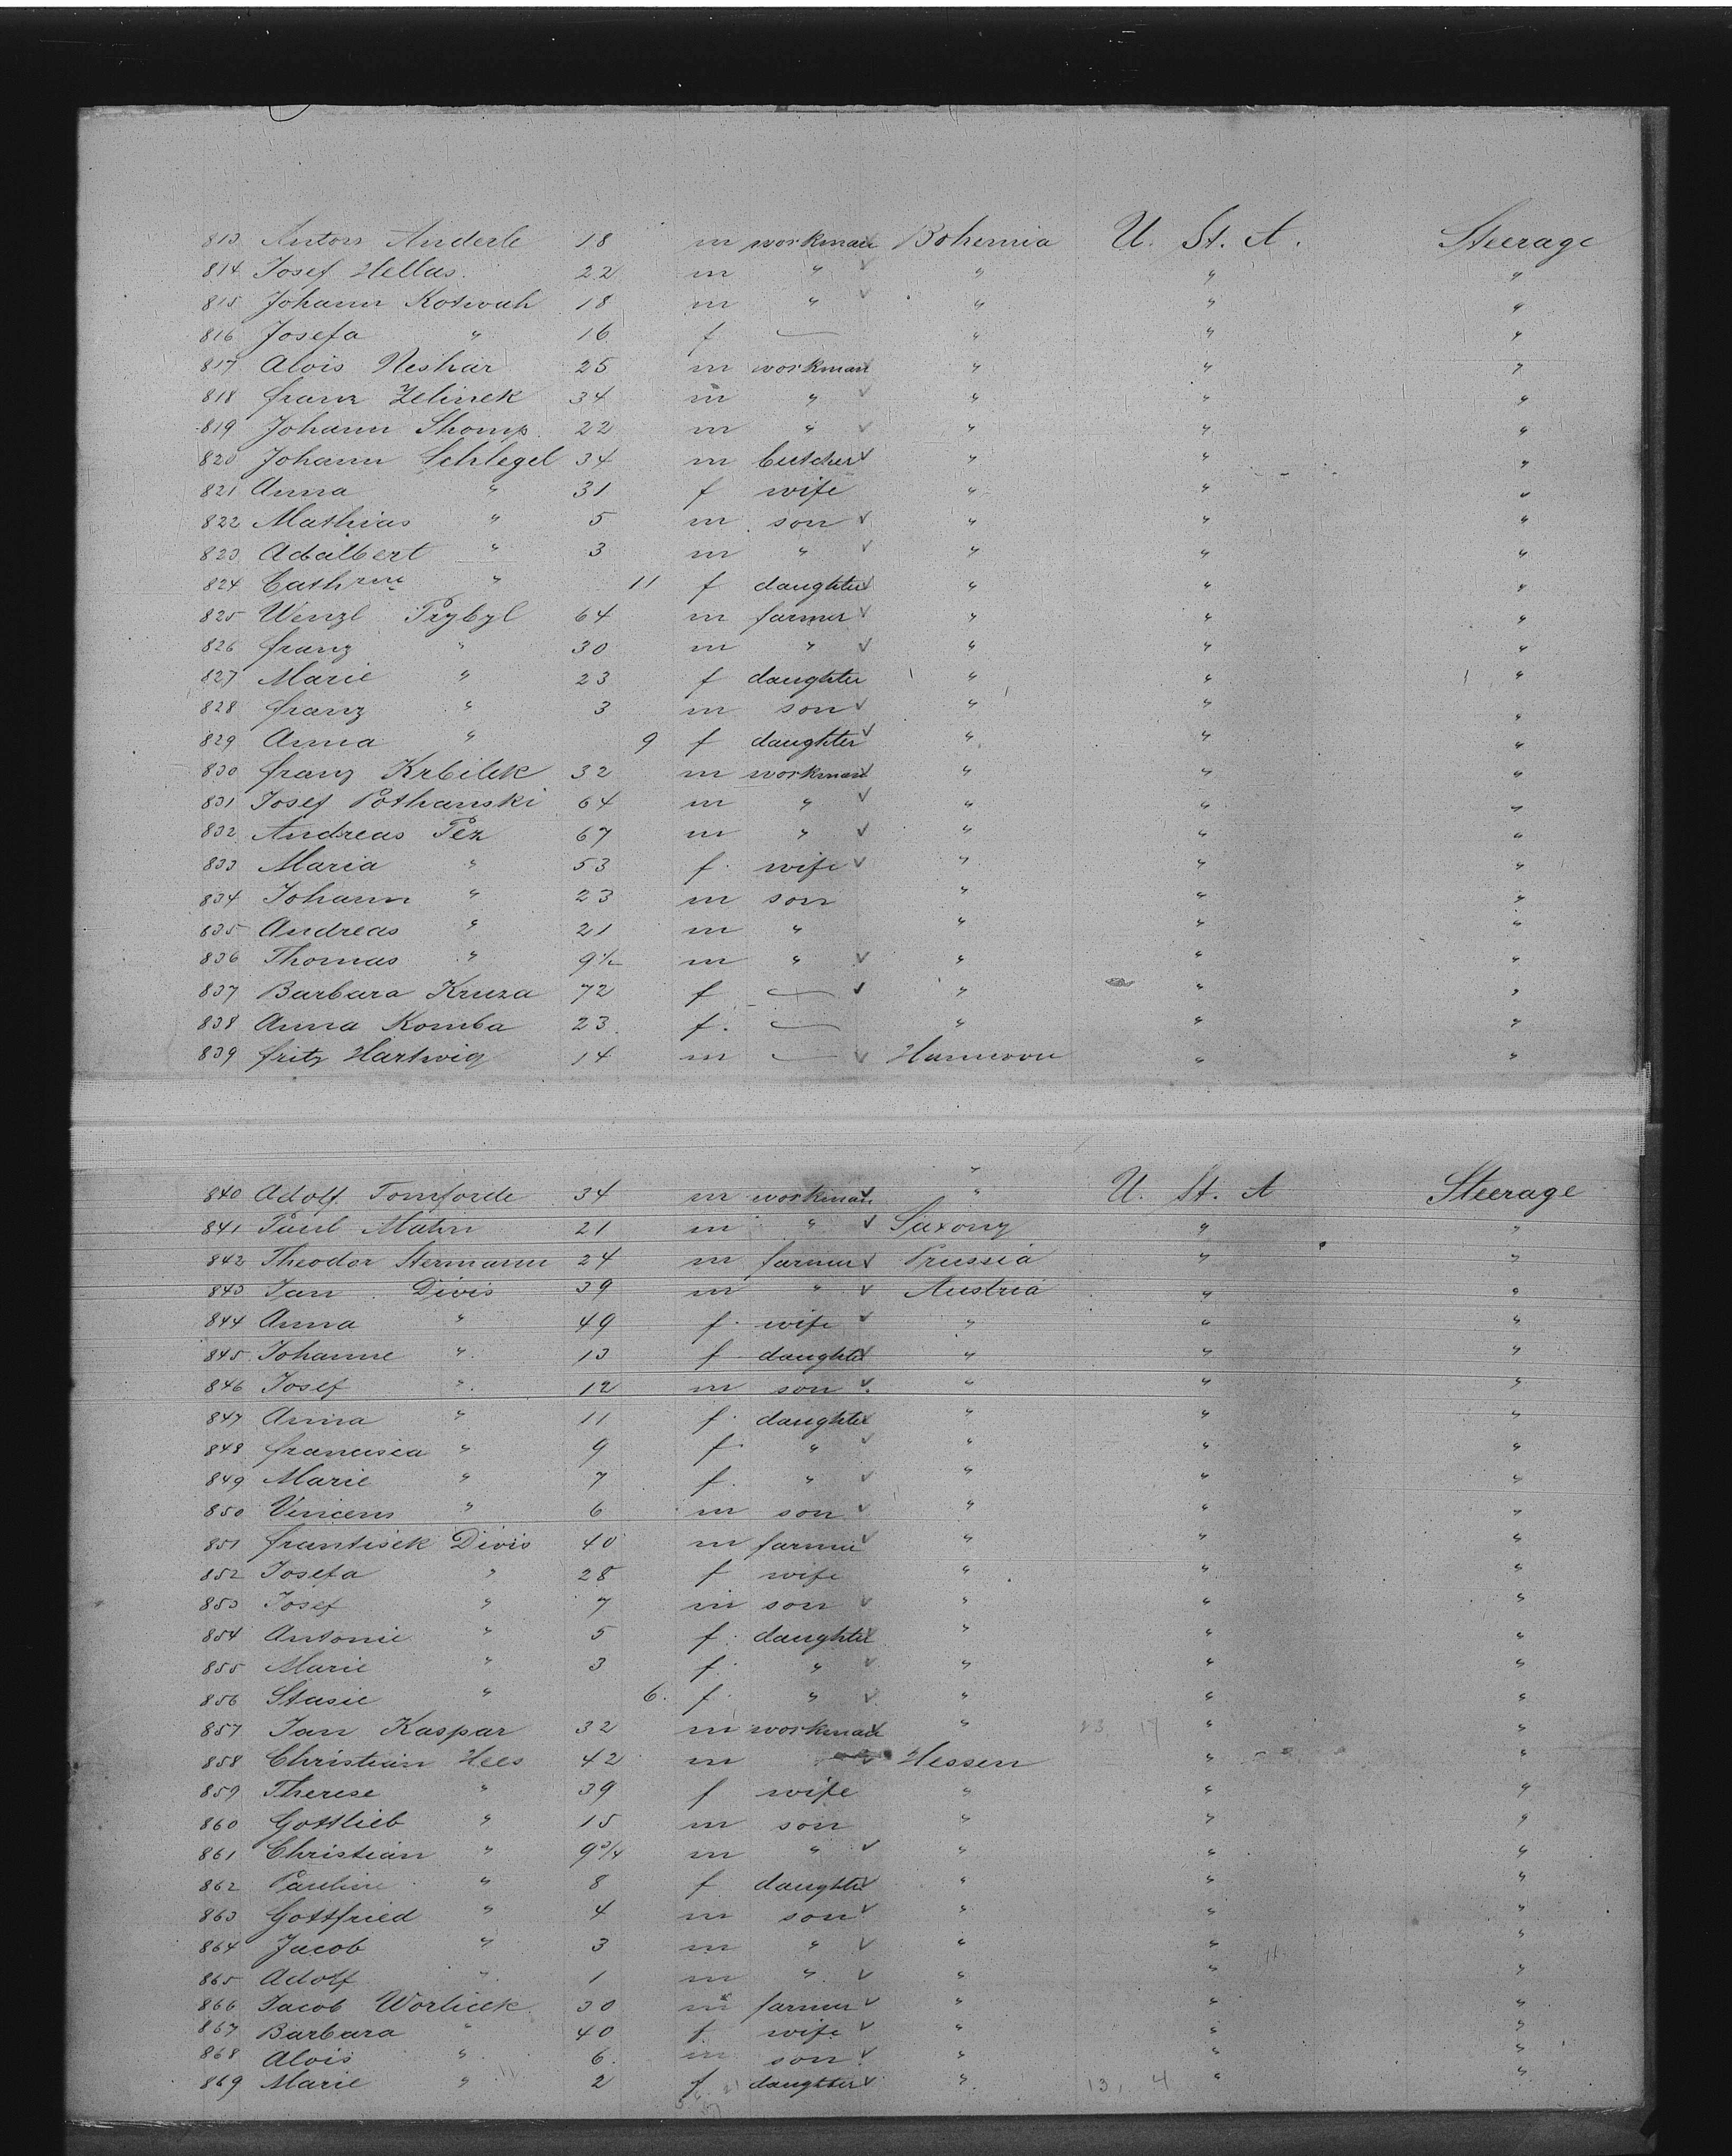 813 Anton Anderle 18 m workman Bohemia U. St. A. Steerage
814 Josef Hellas. 22 m " " " "
815 Johann Kotwah 18 m " " " "
816 Josefa " 16 f — " " "
817 Alois Neshar 25 m workman " " "
818 Franz Zelinek 34 m " " " "
819 Johann Shomp. 22 m " " " "
820 Johann Schlegel 34 m butcher " " "
821 Anna " 31 f wife " " "
822 Mathias " 5 m son " " "
823 Adalbert " 3 m " " " "
824 Cathrine " 11 f daughter " " "
825 Wenzl Przybyl 64 m farmer " " "
826 Franz " 30 m " " " "
827 Marie " 23 f daughter " " "
828 Franz " 3 m son " " "
829 Anna " 9 f daughter " " "
830 Franz Krbilek 32 m workman " " "
831 Josef Pothanski 64 m " " " "
832 Andreas Pez 67 m " " " "
833 Maria " 53 f. wife " " "
834 Johann " 23 m son " " "
835 Andreas " 21 m " " " "
836 Thomas " 9½ m " " " "
837 Barbara Kruza 72 f — " " "
838 Anna Komba 23 f. — " " "
839 Fritz Hartwig 14 m — " "
840 Adolf Tomforde 34 m workman " U. St. A Steerage
841 Paul Mahn 21 m " Saxony " "
842 Theodor Stermann 24 m farmer Prussia " "
843 Jan Divis 39 m " Austria " "
844 Anna " 49 f. wife " " "
845 Johanne " 13 f daughter " " "
846 Josef " 12 m son " " "
847 Anna " 11 f. daughter " " "
848 Francisca " 9 f " " " "
849 Marie " 7 f. " " " "
850 Vincens " 6 m son " " "
851 Frantisek Divis 40 m farmer " " "
852 Josefa " 28 f wife " " "
853 Josef " 7 m son " " "
854 Antonie " 5 f. daughter " " "
855 Marie " 3 f. " " " "
856 Stasie " 6. f. " " " "
857 Jan Kaspar 32 m workman " " "
858 Christian Hees 42 m Hessen " "
859 Therese " 39 f wife " " "
860 Gottlieb " 15 m son " " "
861 Christian " 9¾ m " " " "
862 Pauline " 8 f daughter " " "
863 Gottfried " 4 m son " " "
864 Jacob " 3 m " " " "
865 Adolf " 1 m " " " "
866 Jacob Worlicek 30 m farmer " " "
867 Barbara " 40 f. wife " " "
868 Alois " 6. m son " " "
869 Marie " 2 f daughter " 13, 4 " "